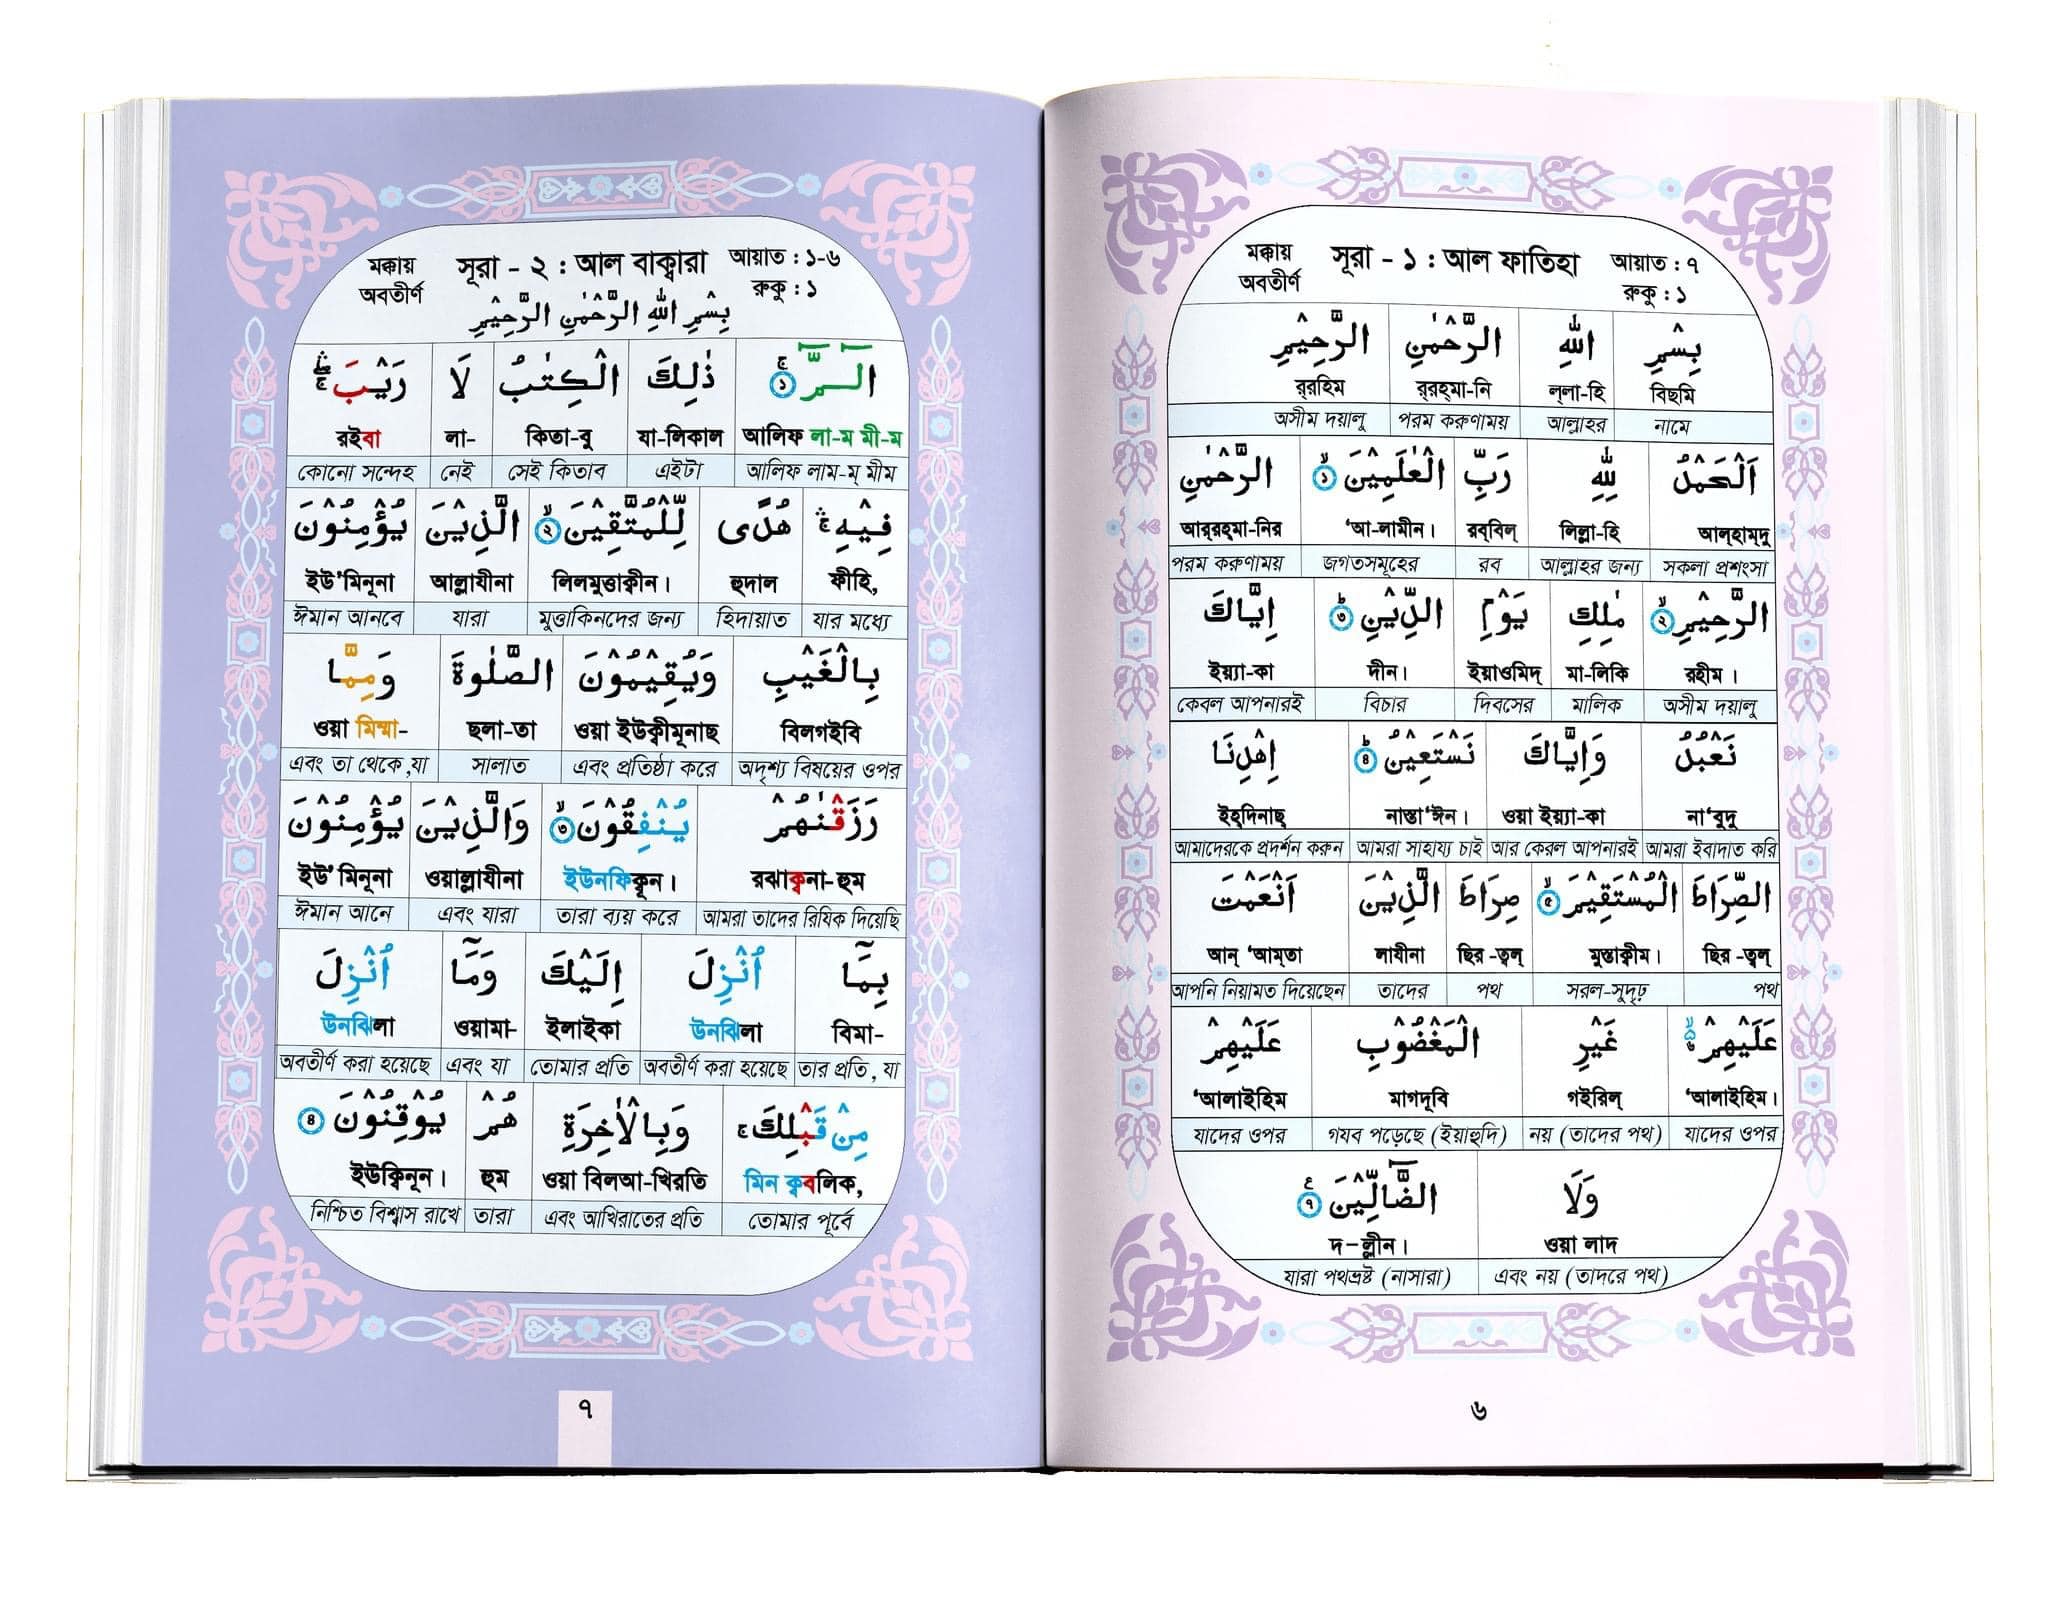 মক্কায় অবতীর্ণ সূরা - ১ : আল ফাতিহা আয়াত : ৭ রুকু : ১
بِسْمِ اللّٰهِ الرَّحْمٰنِ الرَّحِيْمِ
বিছমি ল্লা-হি র্‌রহ্‌মা-নি র্‌রহিম
নামে আল্লাহর পরম করুণাময় অসীম দয়ালু
اَلْحَمْدُ لِلّٰهِ رَبِّ الْعٰلَمِيْنَ ১ الرَّحْمٰنِ
আল্‌হাম্‌দু লিল্লা-হি রব্‌বিল্‌ ‘আ-লামীন। আর্‌রহ্‌মা-নির
সকলা প্রশংসা আল্লাহর জন্য রব জগতসমূহের পরম করুণাময়
الرَّحِيْمِ ২ مٰلِكِ يَوْمِ الدِّيْنِ ৩ اِيَّاكَ
রহীম। মা-লিকি ইয়াওমিদ্‌ দীন। ইয়্যা-কা
অসীম দয়ালু মালিক দিবসের বিচার কেবল আপনারই
نَعْبُدُ وَاِيَّاكَ نَسْتَعِيْنُ ৪ اِهْدِنَا
না‘বুদু ওয়া ইয়্যা-কা নাস্তা‘ঈন। ইহ্‌দিনাছ্‌
আমরা ইবাদাত করি আর কেরল আপনারই আমরা সাহায্য চাই আমাদেরকে প্রদর্শন করুন
الصِّرَاطَ الْمُسْتَقِيْمَ ৫ صِرَاطَ الَّذِيْنَ اَنْعَمْتَ
ছির -ত্বল্‌ মুস্তাক্বীম। ছির -ত্বল্‌ লাযীনা আন্‌ ‘আম্‌তা
পথ সরল-সুদৃঢ় পথ তাদের আপনি নিয়ামত দিয়েছেন
عَلَيْهِمْ ৬ غَيْرِ الْمَغْضُوْبِ عَلَيْهِمْ
‘আলাইহিম। গইরিল্‌ মাগদূবি ‘আলাইহিম
যাদের ওপর নয় (তাদের পথ) গযব পড়েছে (ইয়াহুদি) যাদের ওপর
وَلَا الضَّآلِّيْنَ ৭
ওয়া লাদ দ-ল্লীন।
এবং নয় (তাদরে পথ) যারা পথভ্রষ্ট (নাসারা)
৬
মক্কায় অবতীর্ণ সূরা - ২ : আল বাক্বারা আয়াত : ১-৬ রুকু : ১
بِسْمِ اللّٰهِ الرَّحْمٰنِ الرَّحِيْمِ
الٓـمّٓ ۚ ১ ذٰلِكَ الْكِتٰبُ لَا رَيْبَ ۛۚ
আলিফ লা-ম মী-ম যা-লিকাল কিতা-বু লা- রইবা
আলিফ লাম-ম্‌ মীম এইটা সেই কিতাব নেই কোনো সন্দেহ
فِيْهِ ۛۚ هُدًى لِّلْمُتَّقِيْنَ ২ الَّذِيْنَ يُؤْمِنُوْنَ
ফীহি, হুদাল লিলমুত্তাক্বীন। আল্লাযীনা ইউ’মিনূনা
যার মধ্যে হিদায়াত মুত্তাকিনদের জন্য যারা ঈমান আনবে
بِالْغَيْبِ وَيُقِيْمُوْنَ الصَّلٰوةَ وَمِمَّا
বিলগইবি ওয়া ইউক্বীমূনাছ ছলা-তা ওয়া মিম্মা-
অদৃশ্য বিষয়ের ওপর এবং প্রতিষ্ঠা করে সালাত এবং তা থেকে,যা
رَزَقْنٰهُمْ يُنْفِقُوْنَ ৩ وَالَّذِيْنَ يُؤْمِنُوْنَ
রঝাক্বনা-হুম ইউনফিক্বূন। ওয়াল্লাযীনা ইউ’মিনূনা
আমরা তাদের রিযিক দিয়েছি তারা ব্যয় করে এবং যারা ঈমান আনে
بِمَآ اُنْزِلَ اِلَيْكَ وَمَآ اُنْزِلَ
বিমা- উনঝিলা ইলাইকা ওয়ামা- উনঝিলা
তার প্রতি, যা অবতীর্ণ করা হয়েছে তোমার প্রতি এবং যা অবতীর্ণ করা হয়েছে
مِنْ قَبْلِكَ ۚ وَبِالْاٰخِرَةِ هُمْ يُوْقِنُوْنَ ৪
মিন ক্ববলিক, ওয়া বিলআ-খিরতি হুম ইউক্বিনূন।
তোমার পূর্বে এবং আখিরাতের প্রতি তারা নিশ্চিত বিশ্বাস রাখে
৭